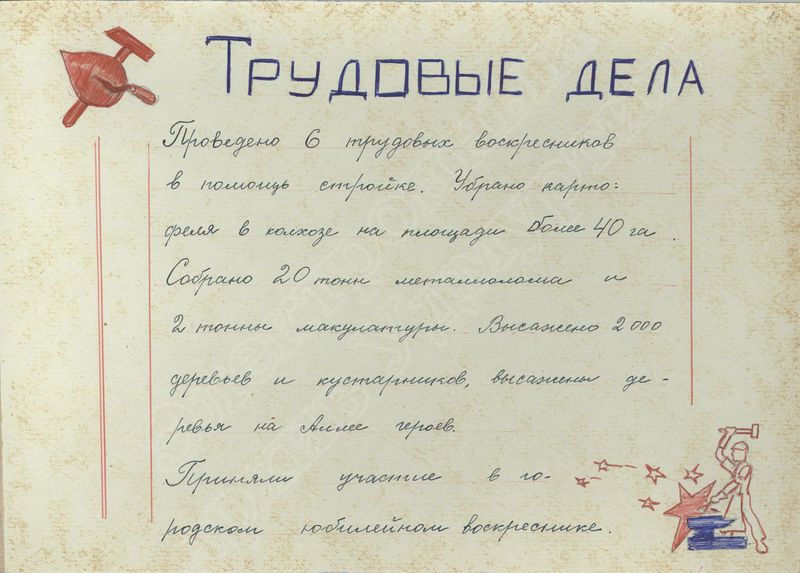 Трудовые дела
Проведено 6 трудовых воскресников
в помощь стройке. Убрано карто-
феля в колхозе на площади более 40 га.
Собрано 20 тонн металлолома и
2 тонны макулатуры. Высажено 2000
деревьев и кустарников, высажены де-
ревья на Аллее героев.
Приняли участие в го-
родском юбилейном воскреснике.